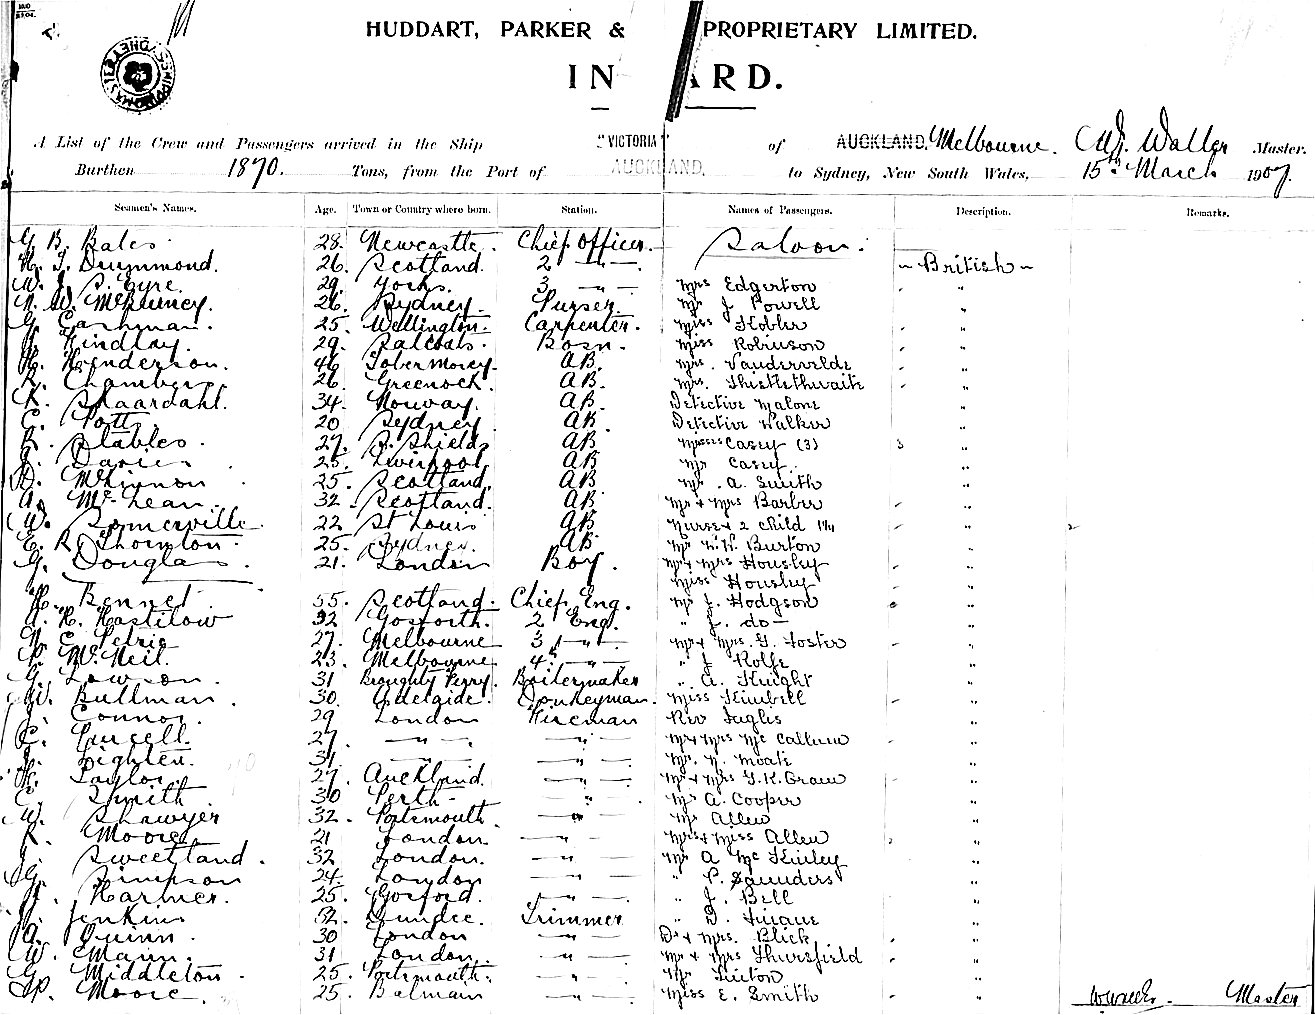 HUDDART, PARKER & PROPRIETARY LIMITED.
IN ARD.
A List of the Crew and Passengers arrived in the Ship "VICTORIA" of AUCKLAND. Melbourne. Waller Master.
Burthen 1870. Tons, from the Port of AUCKLAND, to Sydney, New South Wales, 15th March 1907.
Seamen's Names. Age. Town or Country where born. Station. Names of Passengers. Description. Remarks.
G. B. Bates. 28. Newcastle. Chief Officer. Saloon.
Drummond. 26. Scotland. 2 — " — British
W. J. S. Eyre. 29. Yorks. 3 — " — Mrs Edgerton "
W. McBurney. 26. Sydney. Purser. Mr J. Powell "
G. Cashman. 25. Wellington. Carpenter. Miss "
Findlay. 29. Salcoats. Bosn. Miss Robinson "
Henderson. 46 Tobermorey. AB. Mrs. Vandervelde "
Chambers. 26 Greenock. AB. Mrs. Thistlethwaite "
Skaardahl. 34. Norway. AB. Detective Malone "
C. Pott. 20 Sydney. AB. Detective Walker "
R. Stables. 27. S. Shields AB Misses Casey (3) 3 "
J. Davies 25. Liverpool AB Mr Casey. "
D. McKinnon 25. Scotland. AB Mr. A. Smith "
A. McLean. 32. Scotland. AB Mr & Mrs Barber "
W. Somerville 22 St Louis AB Nurse & 2 child "
R. Thornton. 25. Sydney. AB Mr W. Burton "
G. Douglas. 21. London Boy. Mr & Mrs Housley "
Miss Housley "
Bennet. 55. Scotland. Chief Eng. Mr J. Hodgson "
A. H. Hastilow 32 Gosforth. 2 Eng. " J. do — "
C. Petrie 27. Melbourne 3 — " — Mr & Mrs. G. Foster "
McNeil. 23. Melbourne 4. — " — " J Rolfe "
G. Lawson. 31 Broughty Ferry. Boilermaker " A. Knight "
W. Bullman. 30. Adelaide. Donkeyman. Miss Kimbell "
J. Connor. 29. London Fireman Rev Inglis "
C. Purcell. 27. — " — — " — Mr & Mrs McCallum "
Lighten. 31. — " — — " — Mr. N. Moat "
Taylor. 27. Auckland. — " — Mr & Mrs "
C. Smith 30 Perth — " — Mr A. Cooper "
W. Shawyer 32. Portsmouth. — " — Mr Allen "
R. Moore. 21 London. — " — Mrs & Miss Allen "
J. Sweetland. 32 London. — " — Mr A McKinley "
Simpson 24. London — " — " P. Saunders "
Harmer. 25. Gosford. — " — " J. Bell "
Jenkins 32. Dundee. Trimmer "
A. Quinn. 30 London — " — Dr & Mrs. Blick "
W. Mann. 31 London. — " — Mr & Mrs Thursfield "
Middleton. 25. Portsmouth. — " — Mr "
Moore. 25. Balmain — " — Miss E. Smith "
Master